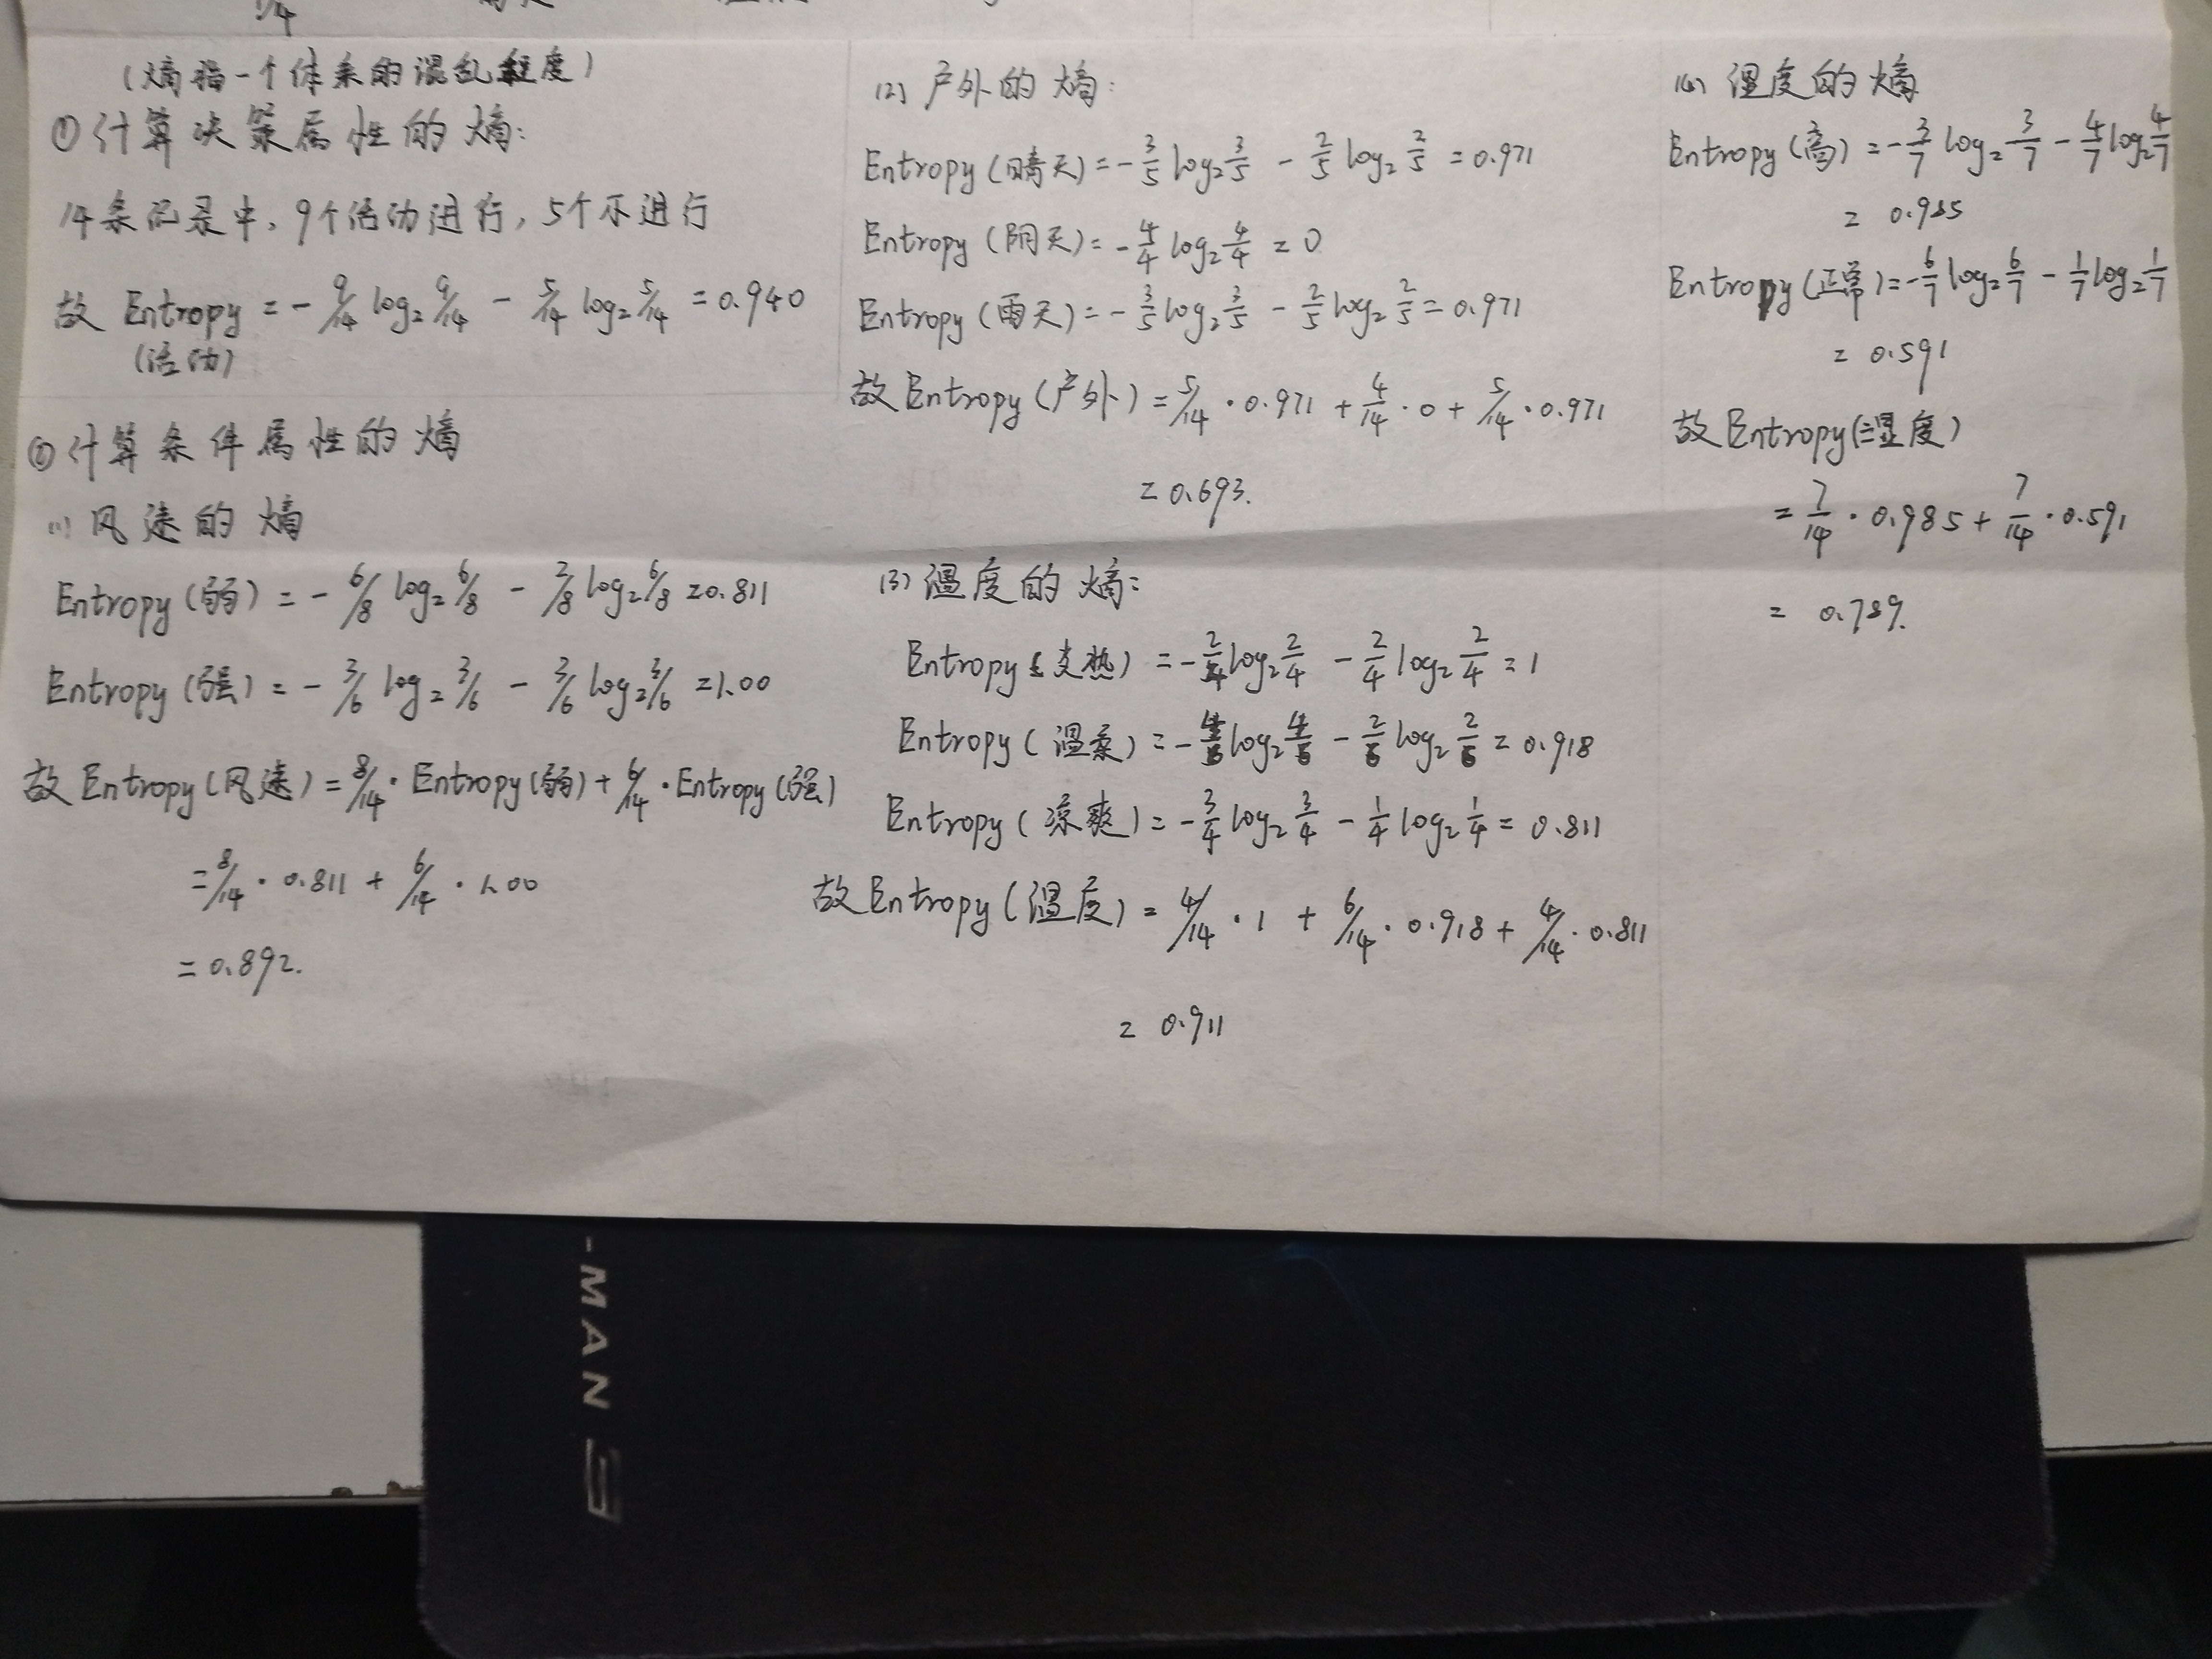 (熵指一个体系的混乱程度)
①计算决策属性的熵:
14条记录中,9个活动进行,5个不进行
故 Entropy = - 9/14 log₂ 9/14 - 5/14 log₂ 5/14 = 0.940
(活动)
②计算条件属性的熵
(1) 风速的熵
Entropy (弱) = - 6/8 log₂ 6/8 - 2/8 log₂ 6/8 = 0.811
Entropy (强) = - 3/6 log₂ 3/6 - 3/6 log₂ 3/6 = 1.00
故 Entropy (风速) = 8/14 · Entropy (弱) + 6/14 · Entropy (强)
= 8/14 · 0.811 + 6/14 · 1.00
= 0.892.
(2) 户外的熵:
Entropy (晴天) = - 3/5 log₂ 3/5 - 2/5 log₂ 2/5 = 0.971
Entropy (阴天) = - 4/4 log₂ 4/4 = 0
Entropy (雨天) = - 3/5 log₂ 3/5 - 2/5 log₂ 2/5 = 0.971
故 Entropy (户外) = 5/14 · 0.971 + 4/14 · 0 + 5/14 · 0.971
= 0.693.
(3) 温度的熵:
Entropy (炎热) = - 2/4 log₂ 2/4 - 2/4 log₂ 2/4 = 1
Entropy (温柔) = - 4/6 log₂ 4/6 - 2/6 log₂ 2/6 = 0.918
Entropy (凉爽) = - 3/4 log₂ 3/4 - 1/4 log₂ 1/4 = 0.811
故 Entropy (温度) = 4/14 · 1 + 6/14 · 0.918 + 4/14 · 0.811
= 0.911
(4) 湿度的熵
Entropy (高) = - 3/7 log₂ 3/7 - 4/7 log₂ 4/7
= 0.985
Entropy (正常) = - 6/7 log₂ 6/7 - 1/7 log₂ 1/7
= 0.591
故 Entropy (湿度)
= 7/14 · 0.985 + 7/14 · 0.591
= 0.789.
-MAN